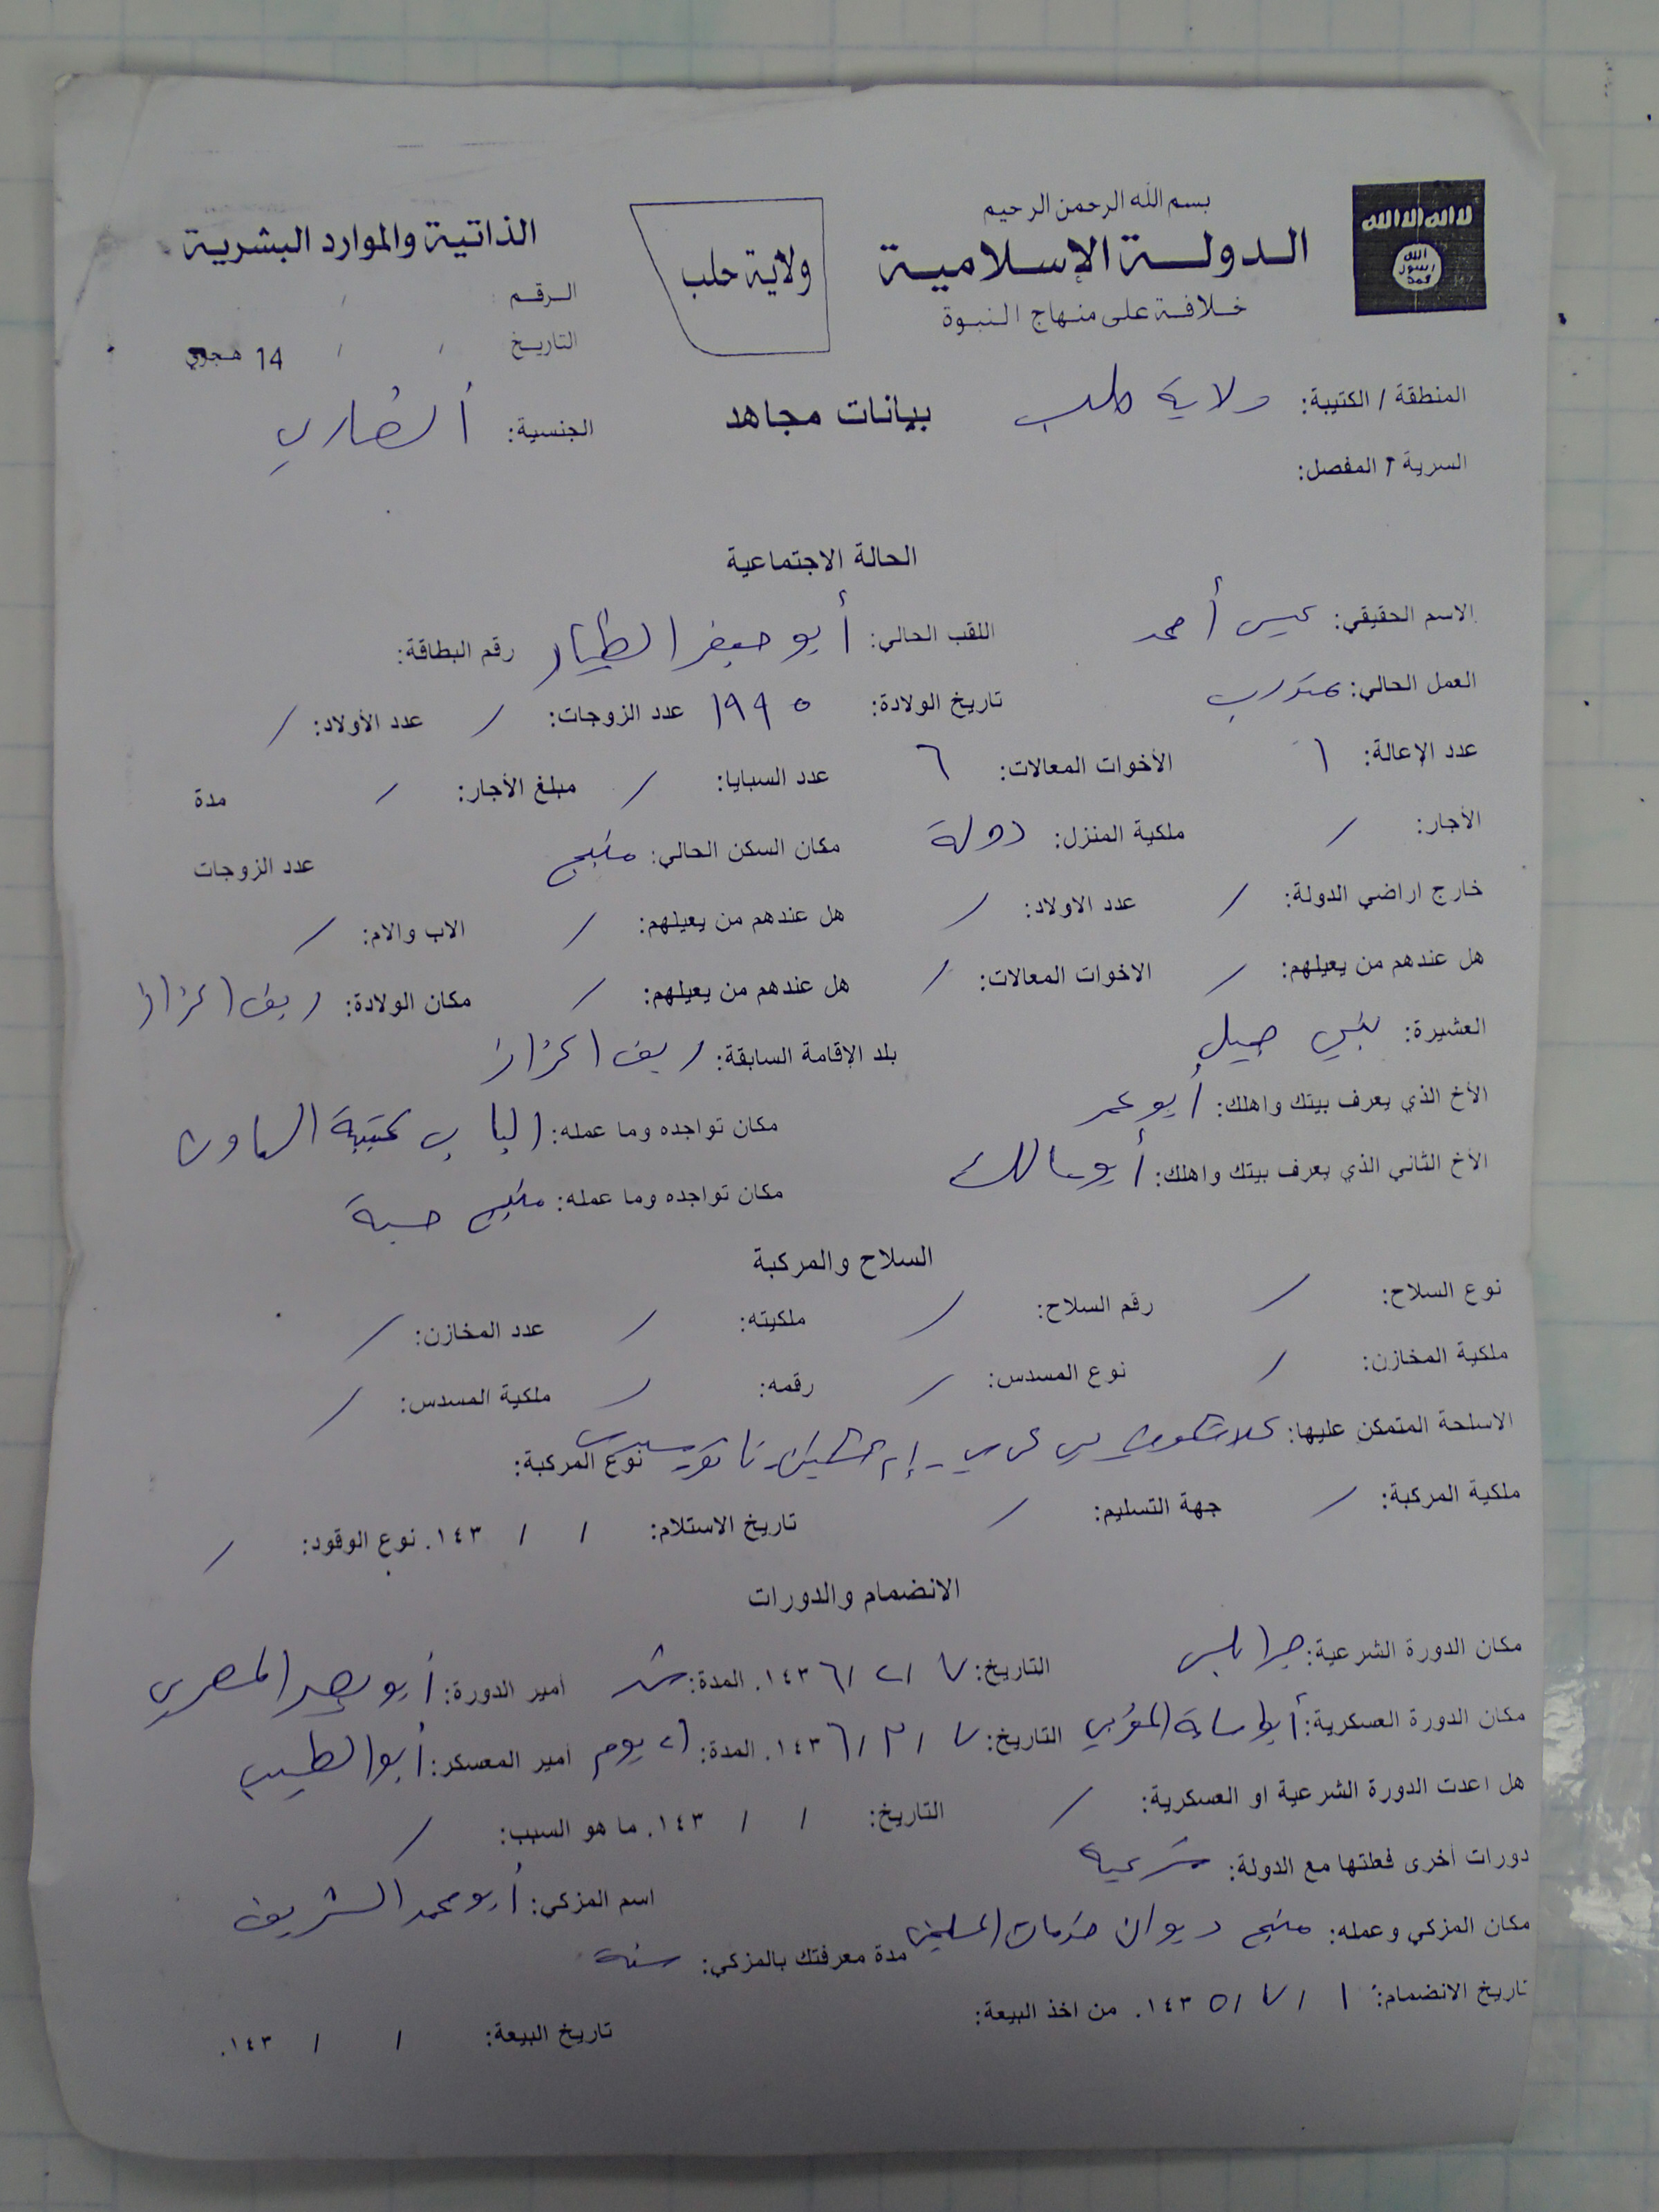 لا اله الا الله
الله رسول محمد
بسم الله الرحمن الرحيم
الدولة الإسلامية
خلافة على منهاج النبوة
ولاية حلب
الذاتية والموارد البشرية
الرقم
التاريخ / / 14 هجري
المنطقة / الكتيبة: ولاية حلب
بيانات مجاهد
الجنسية: أنصاري
السرية / المفصل:
الحالة الاجتماعية
الاسم الحقيقي: عيسى أحمد اللقب الحالي: أبو جعفر الطيار رقم البطاقة:
العمل الحالي: متدرب تاريخ الولادة: ١٩٩٥ عدد الزوجات: / عدد الأولاد: /
عدد الإعالة: ١ الأخوات المعالات: ٦ عدد السبايا: / مبلغ الأجار: / مدة
الأجار: / ملكية المنزل: دولة مكان السكن الحالي: منبج عدد الزوجات
خارج اراضي الدولة: / عدد الاولاد: / هل عندهم من يعيلهم: / الاب والام: /
هل عندهم من يعيلهم: / الاخوات المعالات: / هل عندهم من يعيلهم: / مكان الولادة: ريف اعزاز
العشيرة: بني جميل بلد الإقامة السابقة: ريف اعزاز
الأخ الذي يعرف بيتك واهلك: أبو عمر مكان تواجده وما عمله: الباب كتيبة الهاون
الأخ الثاني الذي يعرف بيتك واهلك: أبو مالك مكان تواجده وما عمله: منبج حسبة
السلاح والمركبة
نوع السلاح: / رقم السلاح: / ملكيته: / عدد المخازن: /
ملكية المخازن: / نوع المسدس: / رقمه: / ملكية المسدس: /
الاسلحة المتمكن عليها: كلاشنكوف نوع المركبة:
ملكية المركبة: / جهة التسليم: / تاريخ الاستلام: / / ١٤٣. نوع الوقود: /
الانضمام والدورات
مكان الدورة الشرعية: جرابلس التاريخ: ٧/ ٢/ ١٤٣٦. المدة: شهر أمير الدورة: أبو المصري
مكان الدورة العسكرية: أبو اسامة المغربي التاريخ: ٧/ ٣/ ١٤٣٦. المدة: يوم أمير المعسكر: أبو الطيب
هل اعدت الدورة الشرعية او العسكرية: / التاريخ: / / ١٤٣. ما هو السبب: /
دورات أخرى فعلتها مع الدولة: شرعية اسم المزكي: أبو محمد الشريف
مكان المزكي وعمله: منبج ديوان خدمات المسلمين مدة معرفتك بالمزكي: سنة
تاريخ الانضمام: ١/ ٧/ ١٤٣٥. من اخذ البيعة: تاريخ البيعة: / / ١٤٣.